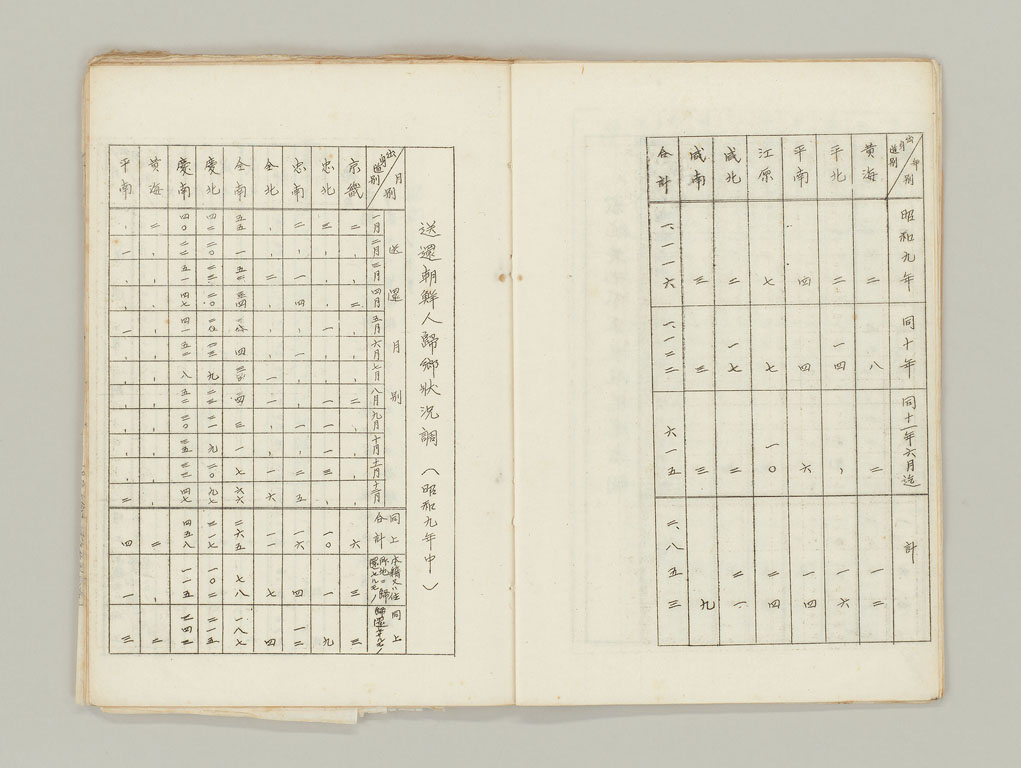 出身道別 年別 昭和九年 同十年 同十一年六月迄 計
黄海 二 八 二 一二
平北 二 一四 、 一六
平南 四 四 六 一四
江原 七 七 一〇 二四
咸北 二 一七 二 二一
咸南 三 三 三 九
合計 一、一一六 一、一二二 六一五 二、八五三
送還朝鮮人歸郷狀況調（昭和九年中）
送還月別
出身道別 月別 一月 二月 三月 四月 五月 六月 七月 八月 九月 十月 十一月 十二月 同上合計 本籍又ハ住所地ニ歸還セルモノ 同上歸還セザルモノ
京畿 二 、 、 二 、 、 、 二 、 、 、 、 六 三 三
忠北 三 、 、 、 一 、 、 一 一 、 三 、 一〇 一 九
忠南 二 、 一 四 、 一 、 、 一 、 二 五 一六 四 一二
全北 、 、 二 、 、 、 一 一 、 、 一 六 一一 七 四
全南 五五 四 三 一 七 六六 二六五 七八 一八七
慶北 四二 二〇 二三 二〇 一三 九 二三 二〇 九 三一七 一〇二 二一五
慶南 四〇 二二 五一 四七 四一 五二 八 五二 三〇 三五 三三 四七 四五八 一一五 三四三
黄海 二 、 、 、 、 、 、 、 、 、 、 、 二 、 二
平南 、 一 、 、 一 、 、 、 、 、 、 二 四 一 三